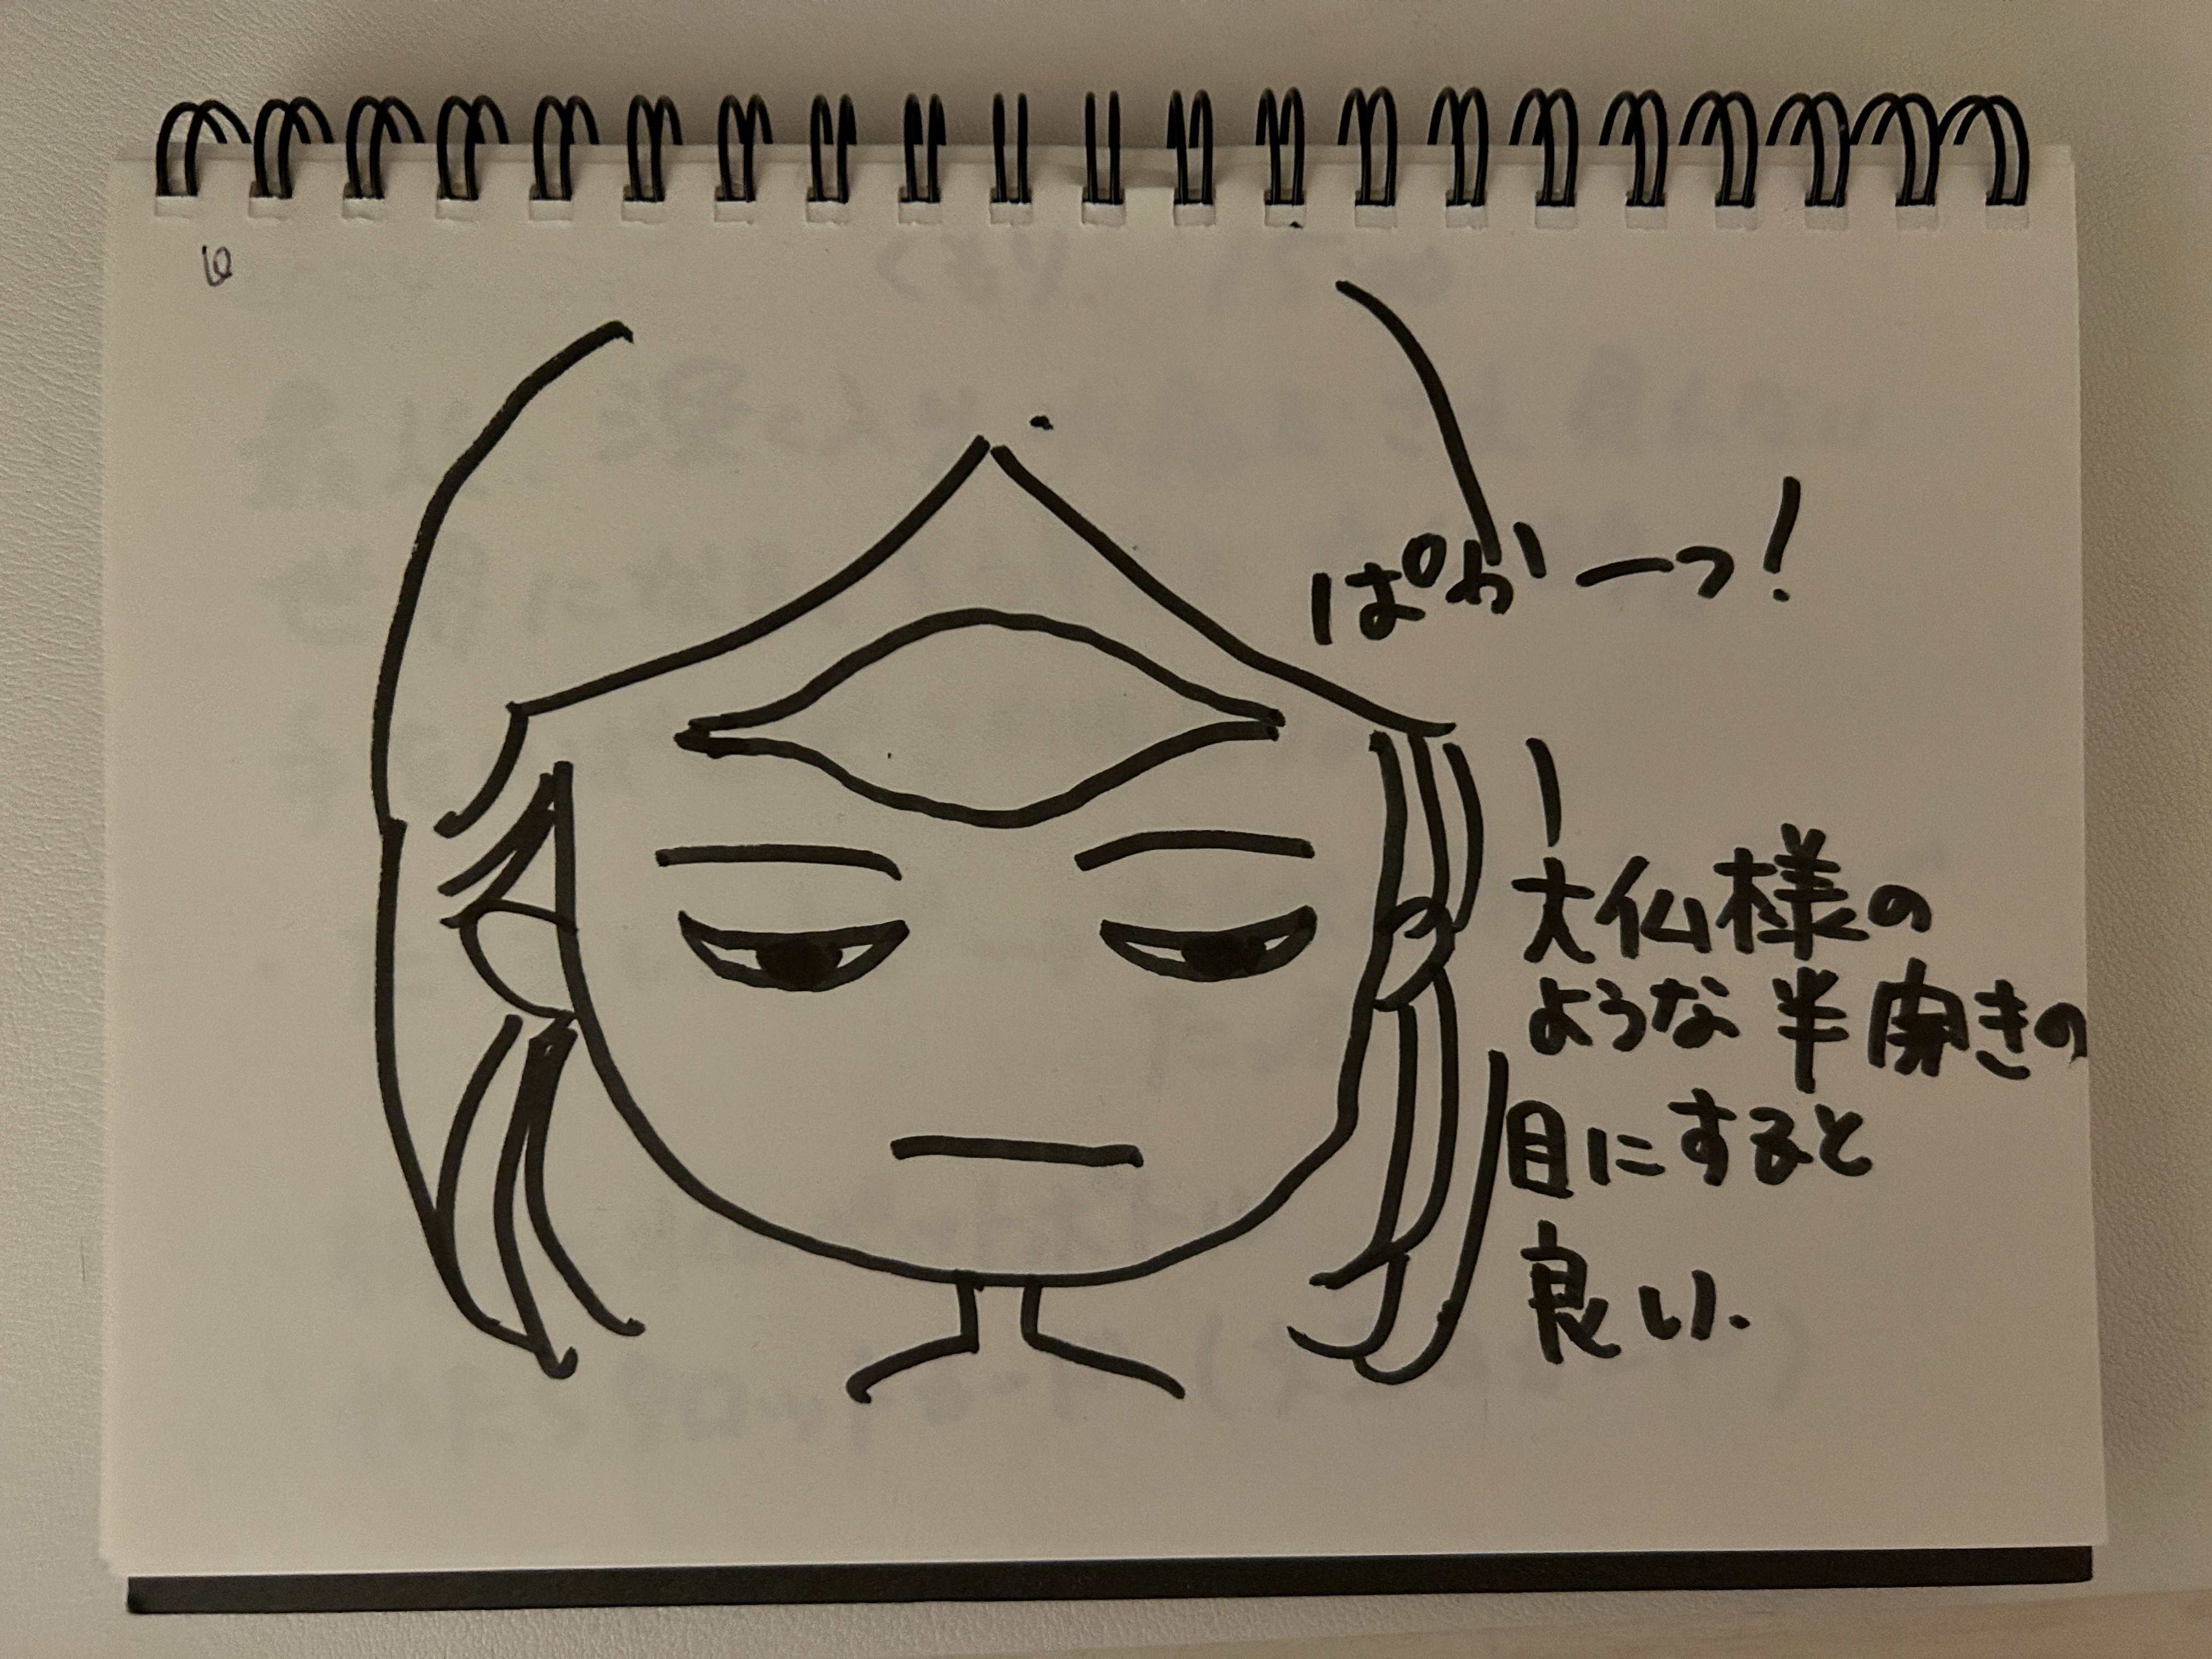 6
ぱかーっ!
大仏様の
ような半開きの
目にすると
良い.